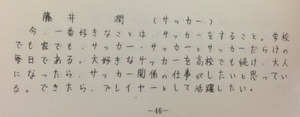 藤井 潤 (サッカー)
今、一番好きなことは、サッカーをすること。学校
でも家でも、サッカー・サッカーとサッカーだらけの
毎日である。大好きなサッカーを高校でも続け、大人
になったら、サッカー関係の仕事がしたいと思ってい
る。できたら、プレイヤーとして活躍したい。
-46-